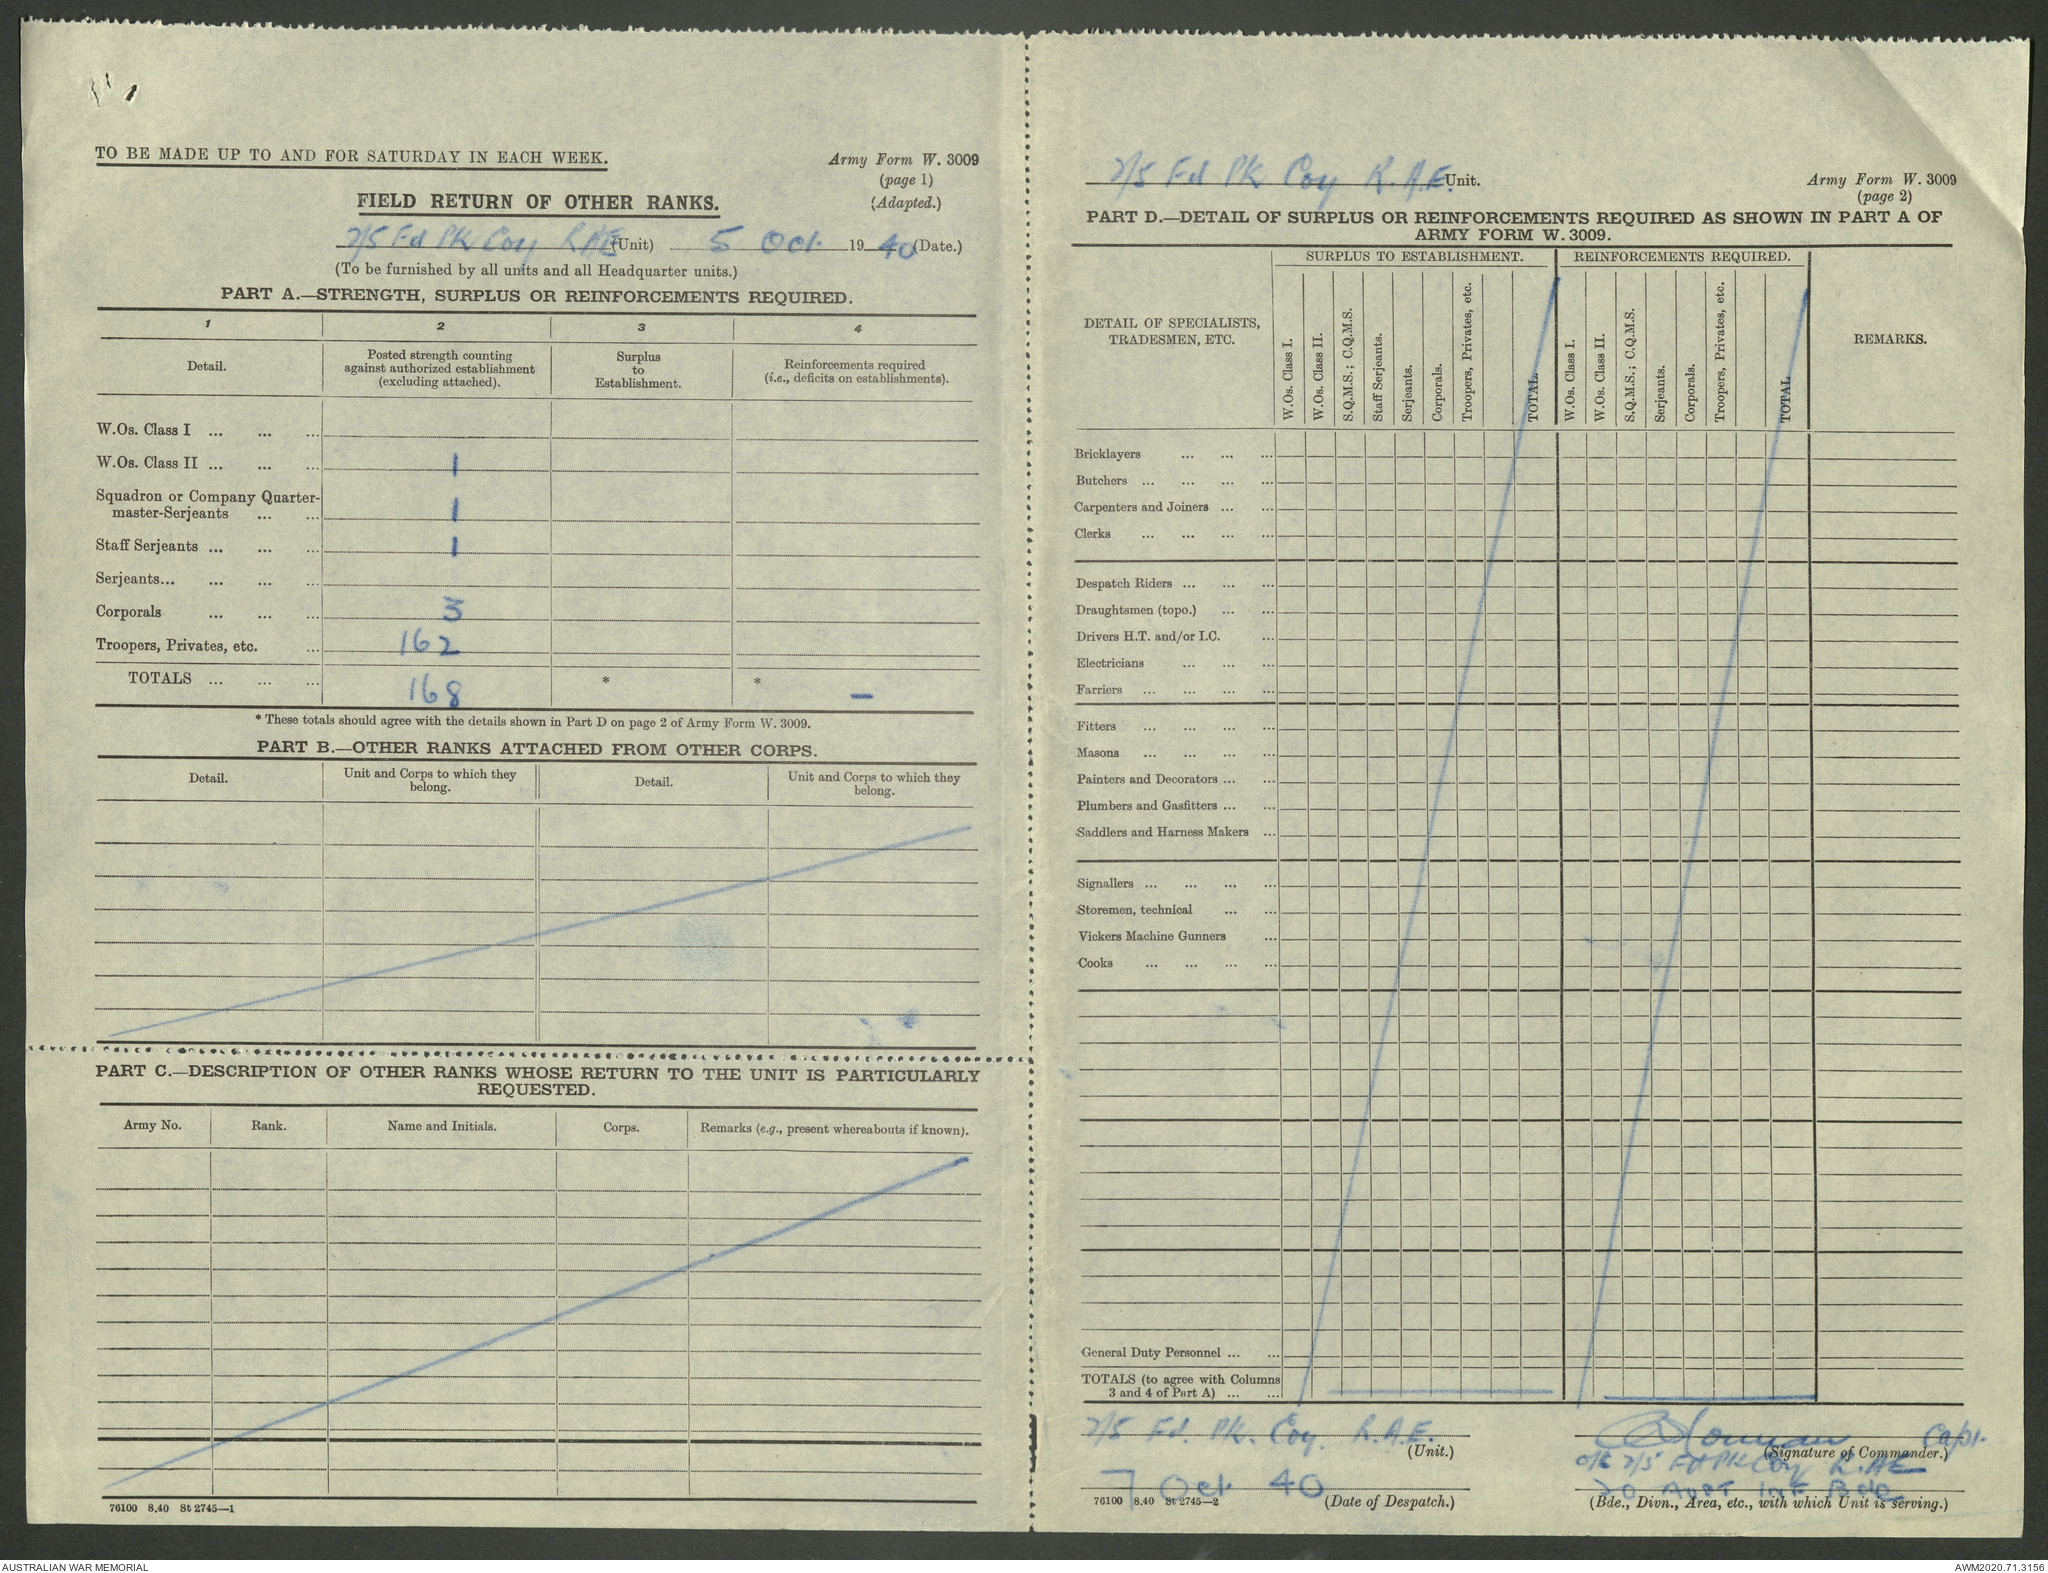 TO BE MADE UP TO AND FOR SATURDAY IN EACH WEEK.
Army Form W. 3009
(page 1)
(Adapted.)
FIELD RETURN OF OTHER RANKS.
2/5 Fd PK Coy RAE (Unit) 5 Oct. 1940 (Date.)
(To be furnished by all units and all Headquarter units.)
PART A.—STRENGTH, SURPLUS OR REINFORCEMENTS REQUIRED.
1 2 3 4
Detail.
Posted strength counting
against authorized establishment
(excluding attached).
Surplus
to
Establishment.
Reinforcements required
(i.e., deficits on establishments).
W.Os. Class I ... ... ...
W.Os. Class II ... ... ... 1
Squadron or Company Quarter-
master-Serjeants ... ... 1
Staff Serjeants ... ... ... 1
Serjeants... ... ... ...
Corporals ... ... ... 3
Troopers, Privates, etc. ... 162
TOTALS ... ... ... 168 * * —
* These totals should agree with the details shown in Part D on page 2 of Army Form W. 3009.
PART B.—OTHER RANKS ATTACHED FROM OTHER CORPS.
Detail.
Unit and Corps to which they
belong.
Detail.
Unit and Corps to which they
belong.
PART C.—DESCRIPTION OF OTHER RANKS WHOSE RETURN TO THE UNIT IS PARTICULARLY
REQUESTED.
Army No. Rank. Name and Initials. Corps. Remarks (e.g., present whereabouts if known).
76100 8.40 St 2745—1
2/5 Fd PK Coy R.A.E. Unit.
Army Form W. 3009
(page 2)
PART D.—DETAIL OF SURPLUS OR REINFORCEMENTS REQUIRED AS SHOWN IN PART A OF
ARMY FORM W. 3009.
SURPLUS TO ESTABLISHMENT. REINFORCEMENTS REQUIRED.
DETAIL OF SPECIALISTS,
TRADESMEN, ETC.
W.Os. Class I.
W.Os. Class II.
S.Q.M.S.; C.Q.M.S.
Staff Serjeants.
Serjeants.
Corporals.
Troopers, Privates, etc.
TOTAL
W.Os. Class I.
W.Os. Class II.
S.Q.M.S.; C.Q.M.S.
Serjeants.
Corporals.
Troopers, Privates, etc.
TOTAL
REMARKS.
Bricklayers ... ... ...
Butchers ... ... ... ...
Carpenters and Joiners ... ...
Clerks ... ... ... ...
Despatch Riders ... ... ...
Draughtsmen (topo.) ... ...
Drivers H.T. and/or I.C. ...
Electricians ... ... ...
Farriers ... ... ... ...
Fitters ... ... ... ...
Masons ... ... ... ...
Painters and Decorators ... ...
Plumbers and Gasfitters ... ...
Saddlers and Harness Makers ...
Signallers ... ... ... ...
Storemen, technical ... ...
Vickers Machine Gunners ...
Cooks ... ... ... ...
General Duty Personnel ... ...
TOTALS (to agree with Columns
3 and 4 of Part A) ... ...
2/5 Fd. PK. Coy. R.A.E.
(Unit.)
Capt.
(Signature of Commander.)
o/c 2/5 Fd PK Coy R.A.E
7 Oct 40
76100 8.40 St 2745—2 (Date of Despatch.)
20 AUST INF Bde
(Bde., Divn., Area, etc., with which Unit is serving.)
AUSTRALIAN WAR MEMORIAL
AWM2020.71.3156